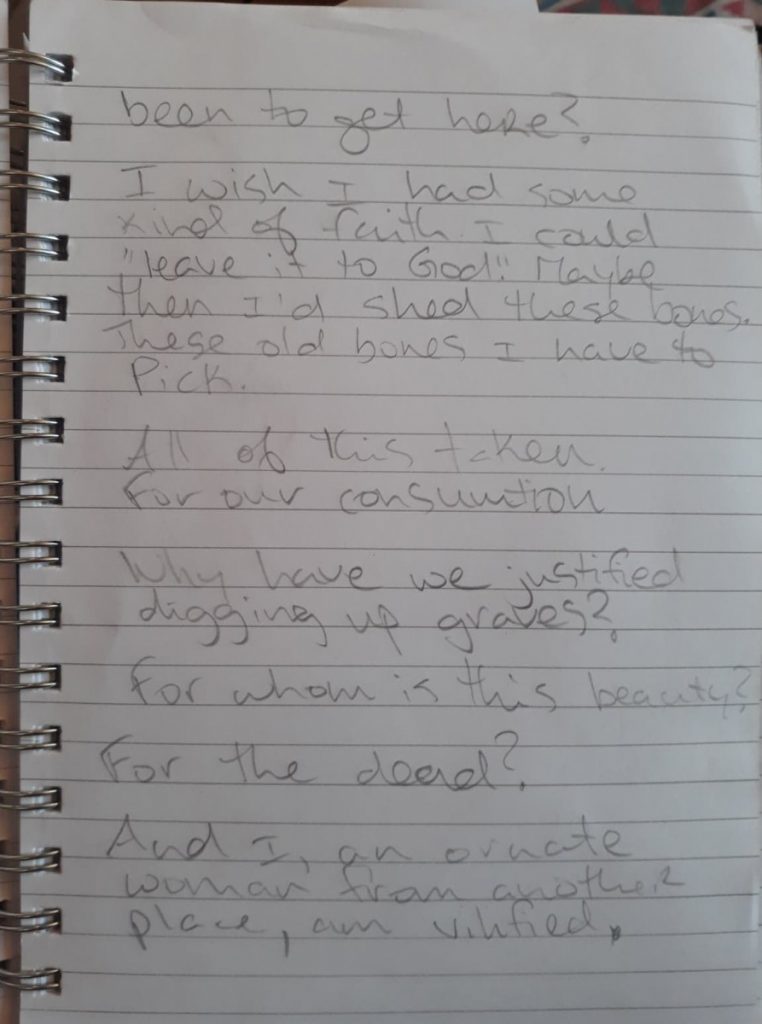 been to get here?
I wish I had some
kind of faith I could
"leave it to God." Maybe
then I'd shed these bones.
These old bones I have to
Pick.
All of this taken.
For our consumtion
Why have we justified
digging up graves?
For whom is this beauty?
For the dead?
And I, an ornate
woman from another
place, am vilified.